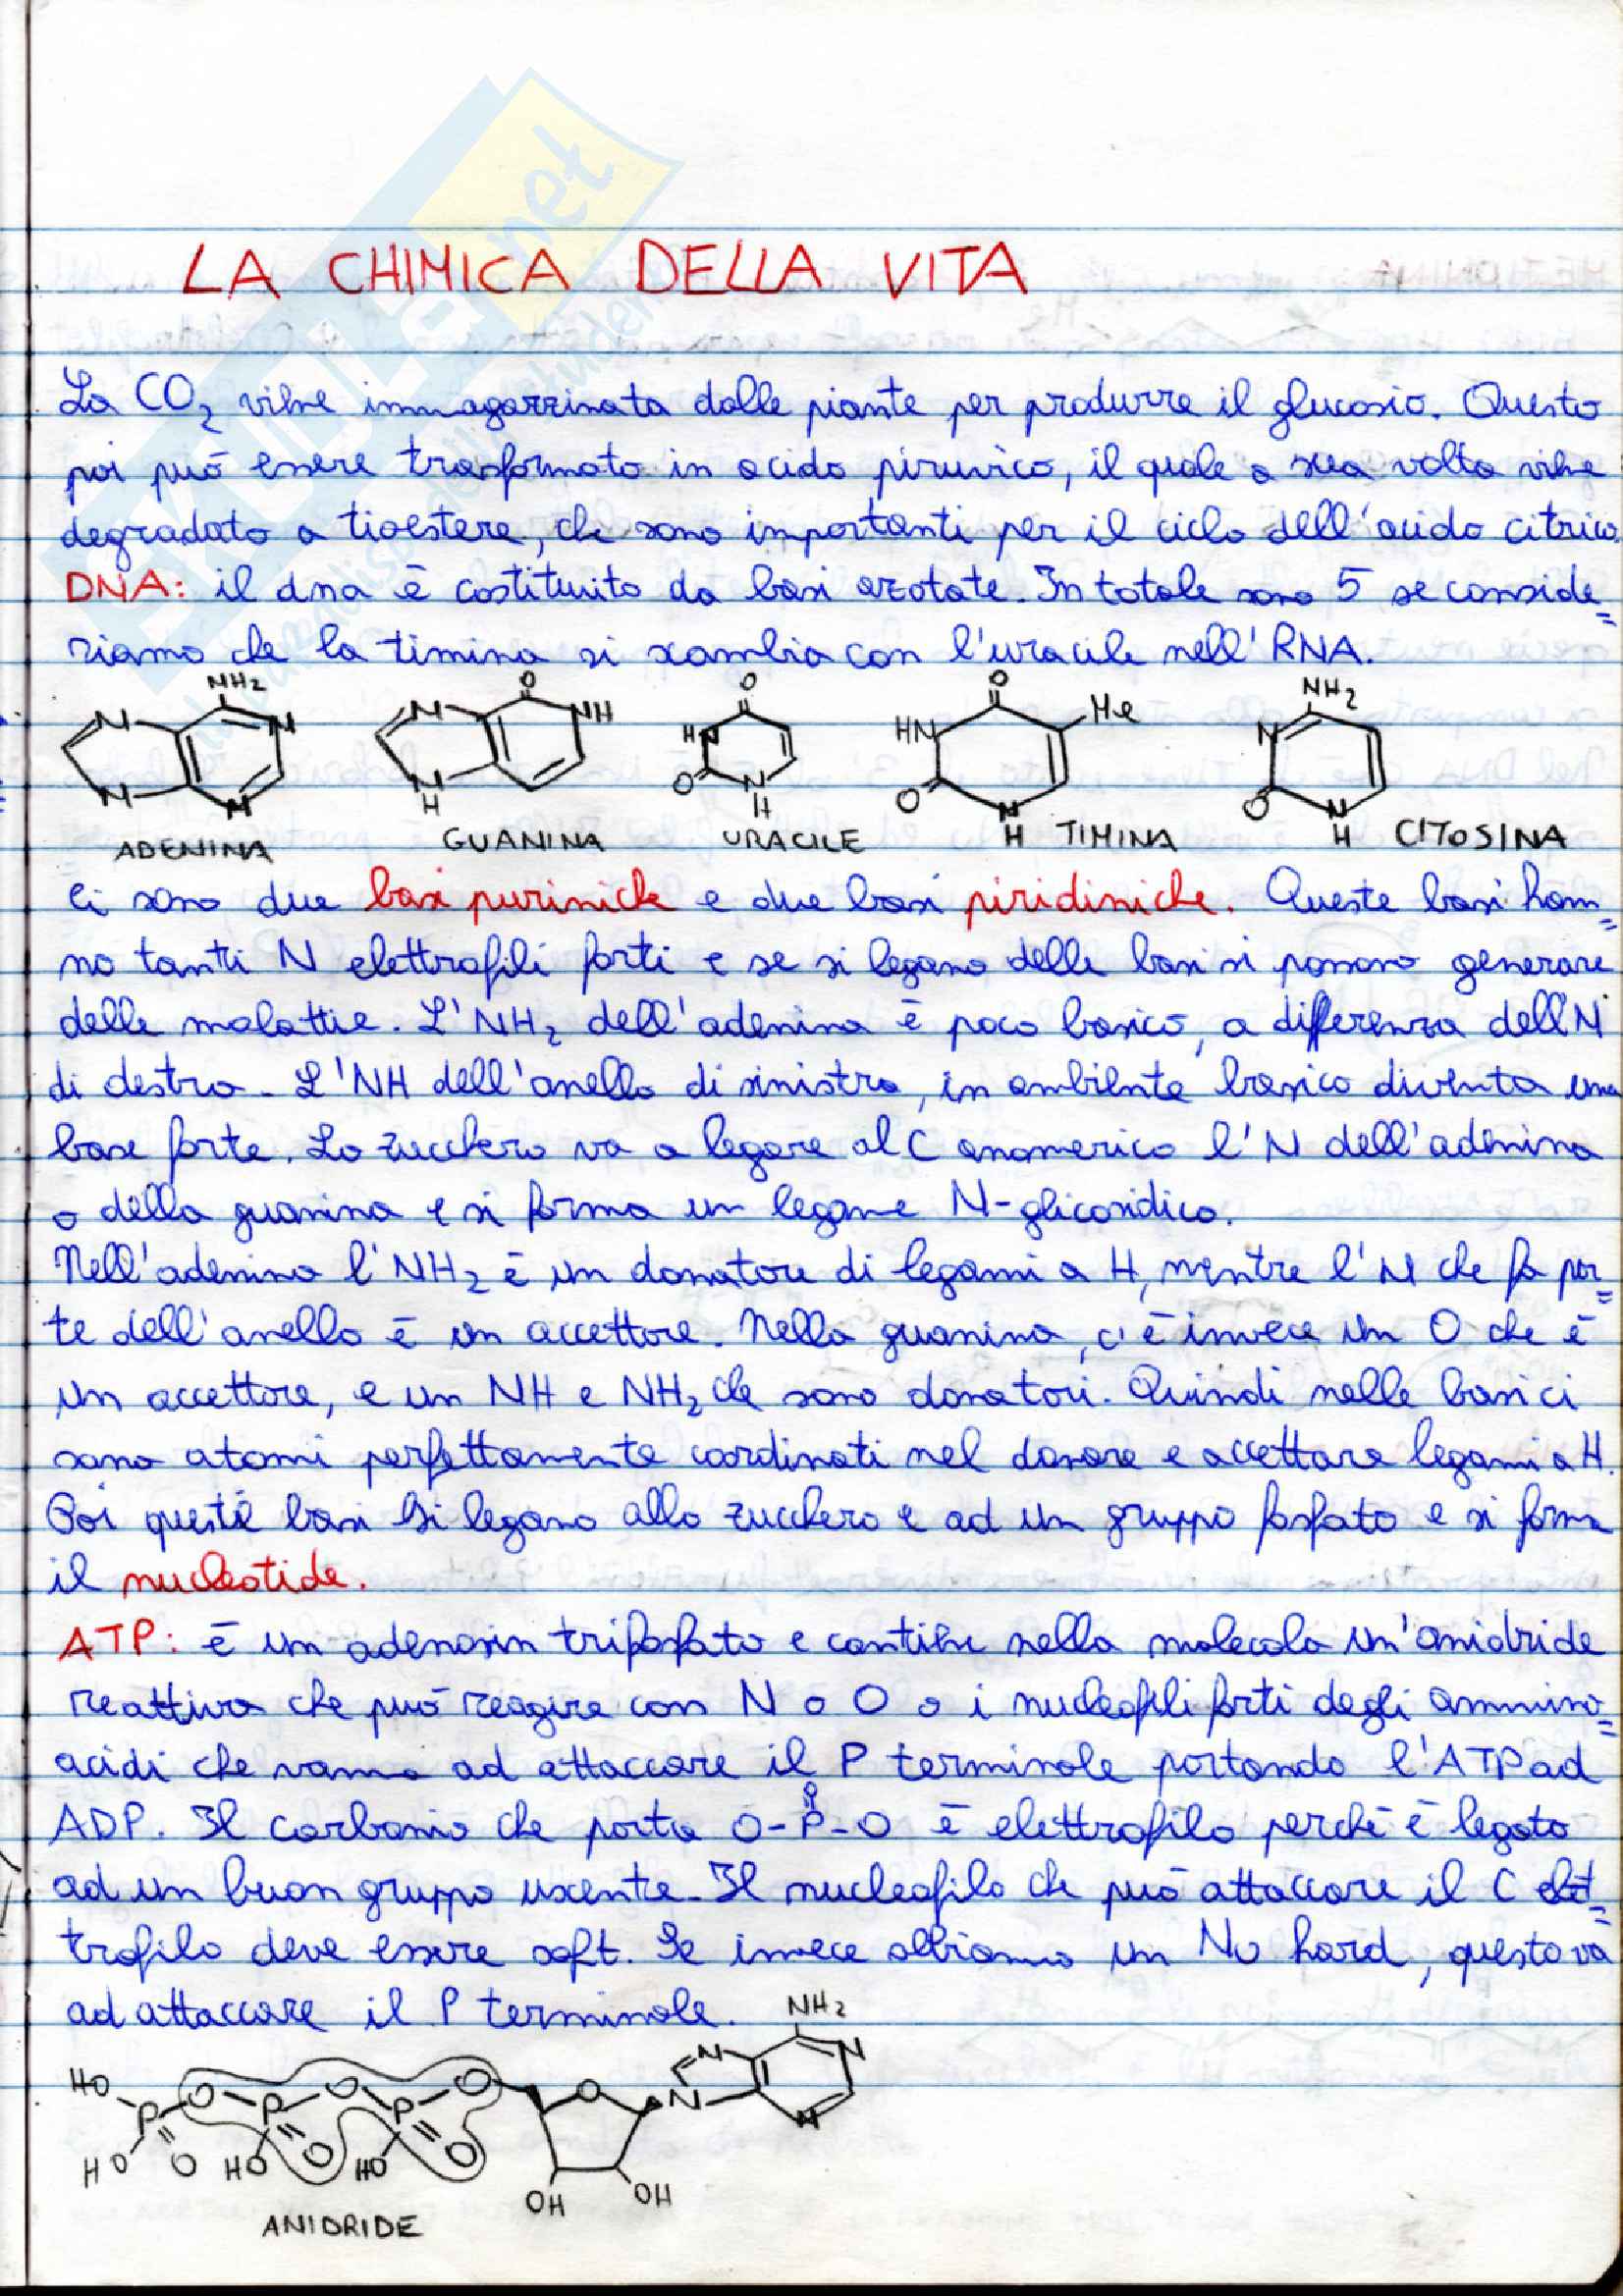 LA CHIMICA DELLA VITA
La CO₂ viene immagazzinata dalle piante per produrre il glucosio. Questo
poi può essere trasformato in acido piruvico, il quale a sua volta viene
degradato a tioestere, che sono importanti per il ciclo dell'acido citrico.
DNA: il dna è costituito da basi azotate. In totale sono 5 se conside=
riamo che la timina si scambia con l'uracile nell'RNA.
NH₂ N N N N O N NH N H O HN O N H O HN O N H Me NH₂ N O N H
ADENINA GUANINA URACILE TIMINA CITOSINA
Ci sono due basi puriniche e due basi piridiniche. Queste basi han=
no tanti N elettrofili forti e se si legano delle basi si possono generare
delle malattie. L'NH₂ dell'adenina è poco basico, a differenza dell'N
di destra. L'NH dell'anello di sinistra, in ambiente basico diventa una
base forte. Lo zucchero va a legare al C anomerico l'N dell'adenina
o della guanina e si forma un legame N-glicosidico.
Nell'adenina l'NH₂ è un donatore di legami a H, mentre l'N che fa par=
te dell'anello è un accettore. Nella guanina, c'è invece un O che è
un accettore, e un NH e NH₂ che sono donatori. Quindi nelle basi ci
sono atomi perfettamente coordinati nel donare e accettare legami a H.
Poi queste basi si legano allo zucchero e ad un gruppo fosfato e si forma
il nucleotide.
ATP: è un adenosin trifosfato e contiene nella molecola un'anidride
reattiva che può reagire con N o O o i nucleofili forti degli ammino=
acidi che vanno ad attaccare il P terminale portando l'ATP ad
ADP. Il carbonio che porta O-P-O è elettrofilo perchè è legato
O
ad un buon gruppo uscente. Il nucleofilo che può attaccare il C elet=
trofilo deve essere soft. Se invece abbiamo un Nu hard, questo va
ad attaccare il P terminale.
NH₂
N N N N
HO P O P O P O O
HO O HO O HO O
OH OH
ANIDRIDE
SKUOLA.net